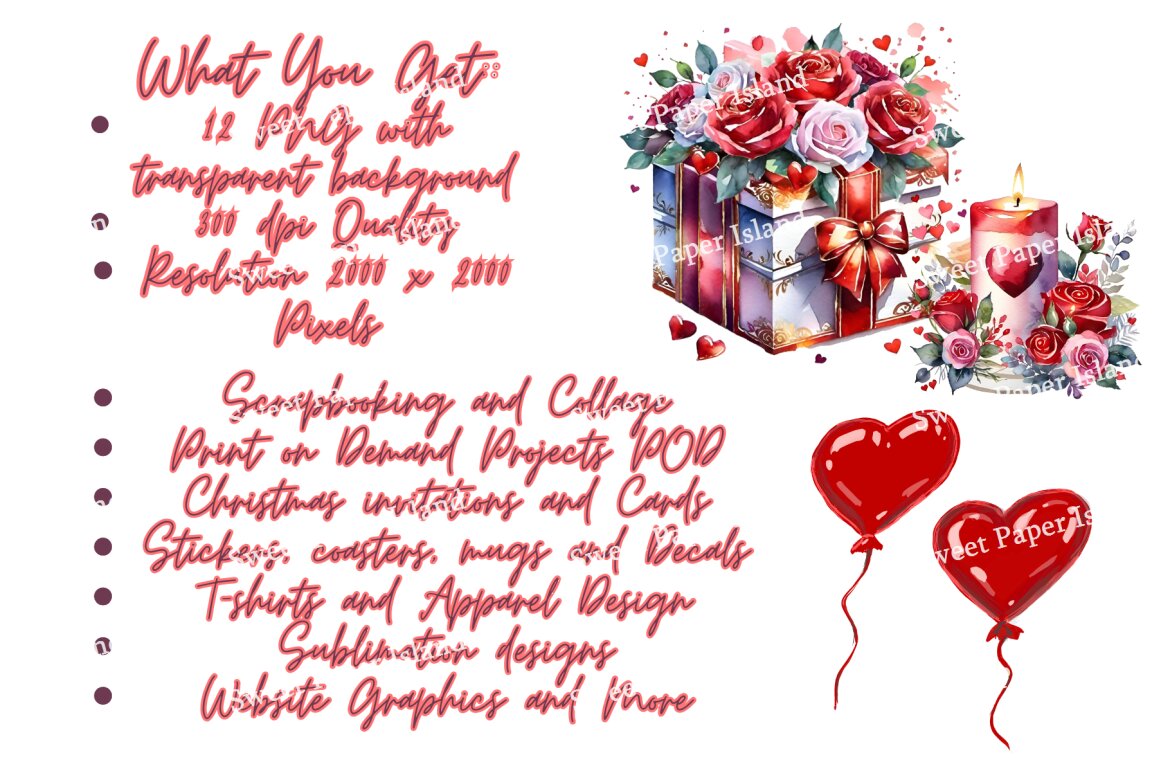 What You Get:
12 PNG with
transparent background
300 dpi Quality
Resolution 2000 x 2000
Pixels
Scrapbooking and Collage
Print on Demand Projects POD
Christmas invitations and Cards
Stickers, coasters, mugs and Decals
T-shirts and Apparel Design
Sublimation designs
Website Graphics and More
Paper Island
Sweet
Paper Island
Sweet Paper Island
Paper Island
Sweet
Sweet Paper Is